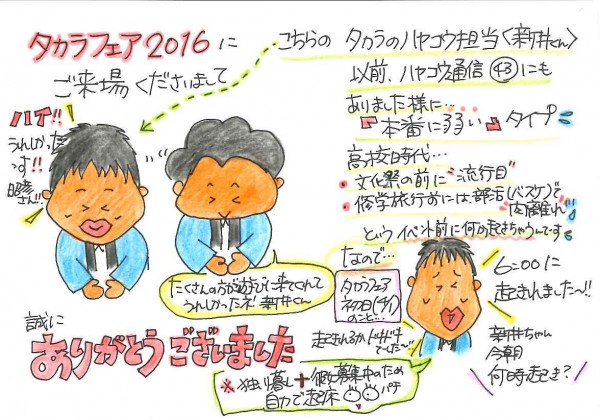 タカラフェア2016に
ご来場くださいまして
ハイ!!
うれしかった
っす!!
昭彦
さん!!
こちらの タカラのハヤコウ担当〈新井くん〉
以前、ハヤコウ通信㊸にも
ありました様に…
『本番に弱い』タイプ
高校時代…
・文化祭の前に"流行目"
・修学旅行前には、部活(バスケ)で
肉離れ
というイベント前に何か起きちゃうんです
なので…
タカラフェア
初日(4/1)
のこと…
起きれるか ドキドキ
でした〜
6:00に
起きれました〜!!
新井ちゃん
今朝
何時起き?
たくさんの方が遊びに来てくれて
うれしかったネ! 新井くん
誠に
ありがとうございました
※独り暮し+彼女募集中のため
自力で起床 パチ